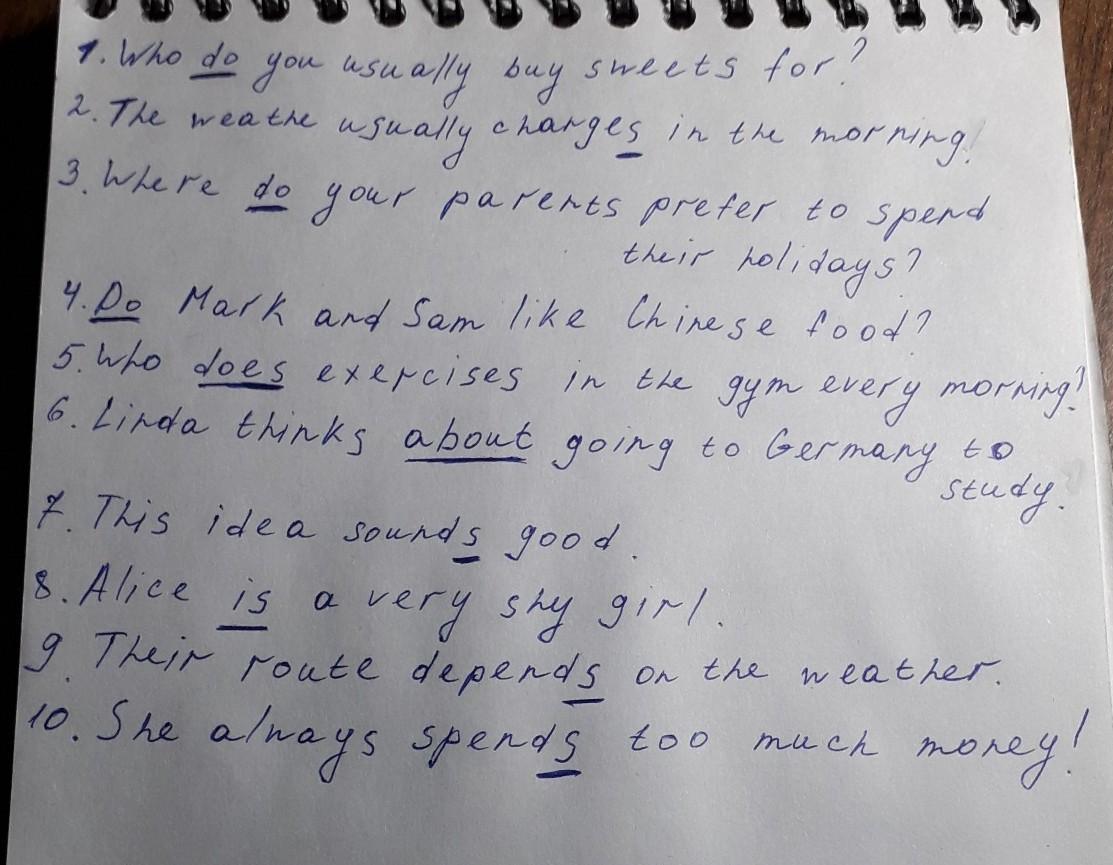 1. Who do you usually buy sweets for?
2. The weathe usually changes in the morning!
3. Where do your parents prefer to spend
their holidays?
4. Do Mark and Sam like Chinese food?
5. Who does exercises in the gym every morning?
6. Linda thinks about going to Germany to
study.
7. This idea sounds good.
8. Alice is a very shy girl.
9. Their route depends on the weather.
10. She always spends too much money!